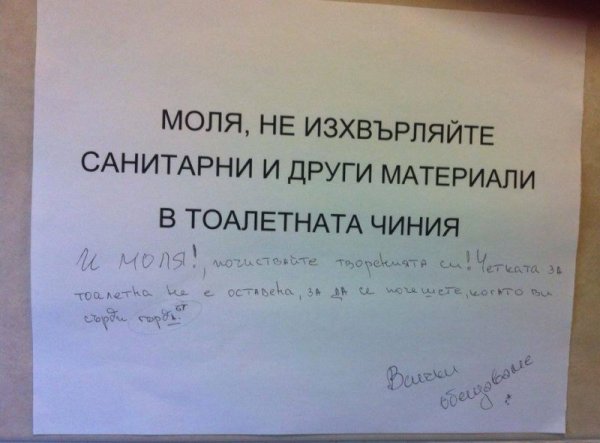 МОЛЯ, НЕ ИЗХВЪРЛЯЙТЕ
САНИТАРНИ И ДРУГИ МАТЕРИАЛИ
В ТОАЛЕТНАТА ЧИНИЯ
И МОЛЯ!, почиствайте творенията си! Четката за
тоалетна не е оставена, за да се почешете, когато ви
сърби гърбът
Всички
обещаваме